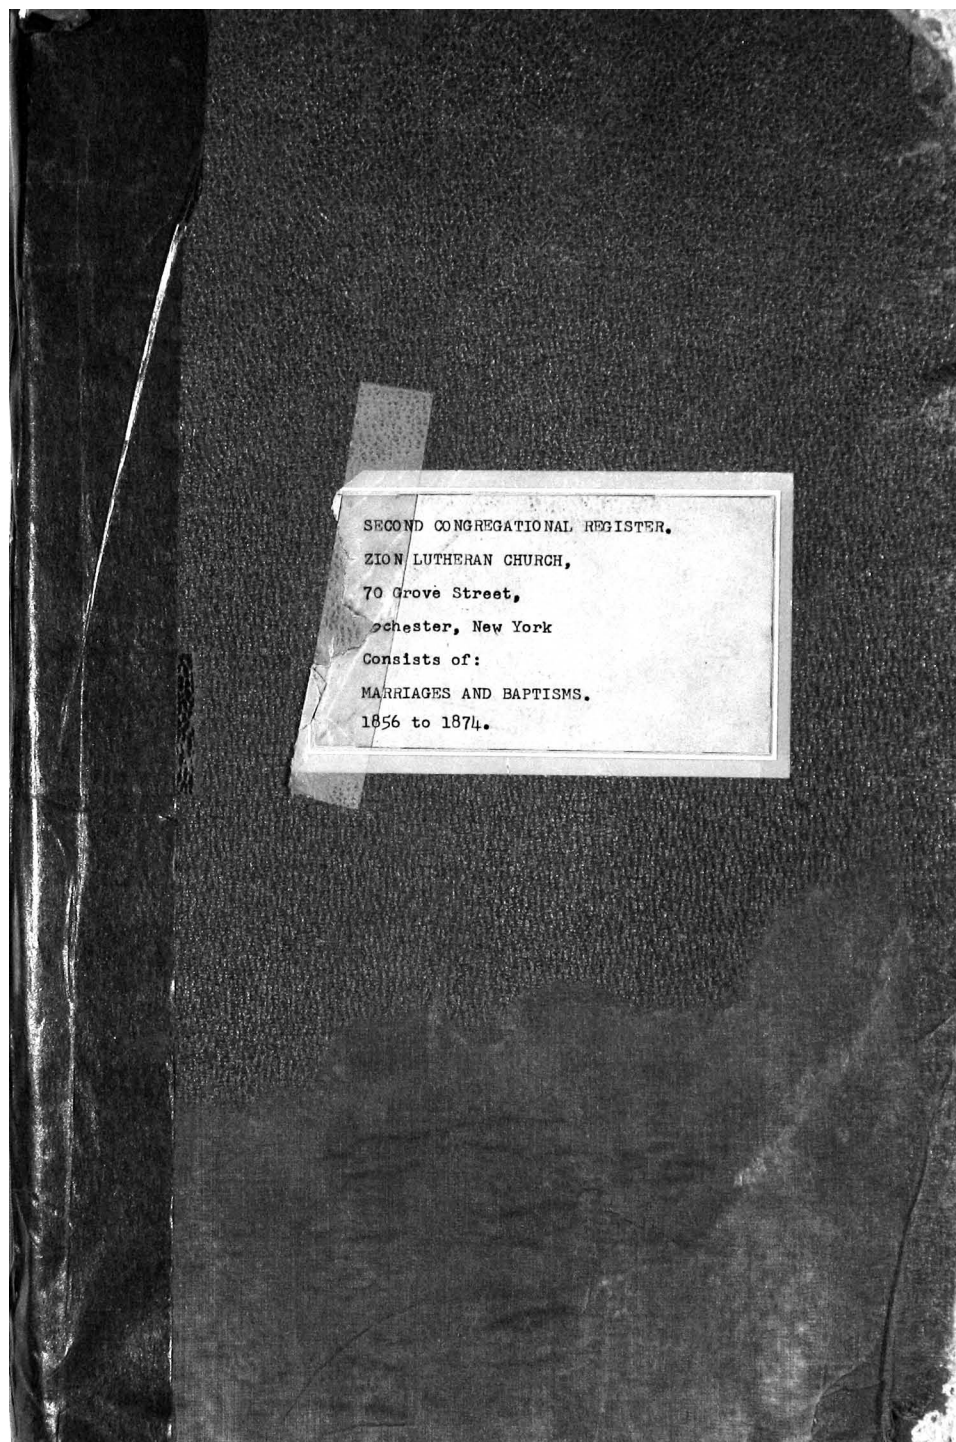 SECOND CONGREGATIONAL REGISTER.
ZION LUTHERAN CHURCH,
70 Grove Street,
ochester, New York
Consists of:
MARRIAGES AND BAPTISMS.
1856 to 1874.